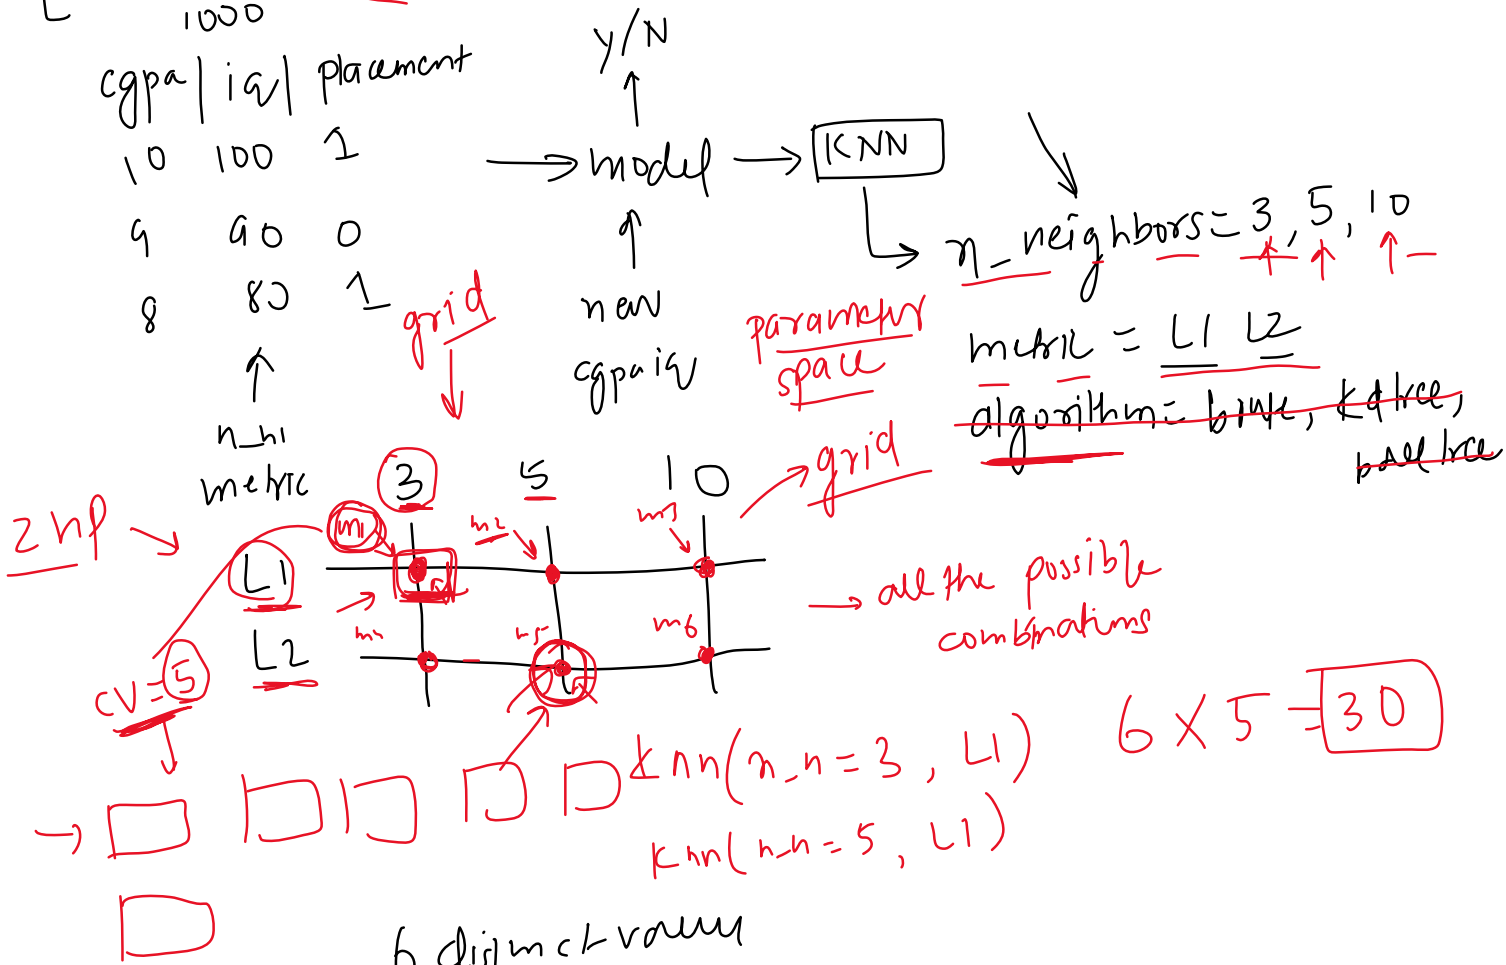 1000
cgpa | iq | placement
10 100 1
9 90 0
8 80 1
n_n
metric
Y/N
model
KNN
new
cgpa iq
n_neighbors = 3, 5, 10
metric = L1 L2
algorithm = brute, kd tree,
ball tree
parameter
space
grid
grid
2 hp
3 5 10
m1 m2 m3
L1
m4 m5 m6
L2
CV = 5
all the possible
combinations
6 X 5 = 30
knn(n_n = 3, L1)
knn(n_n = 5, L1)
6 distinct